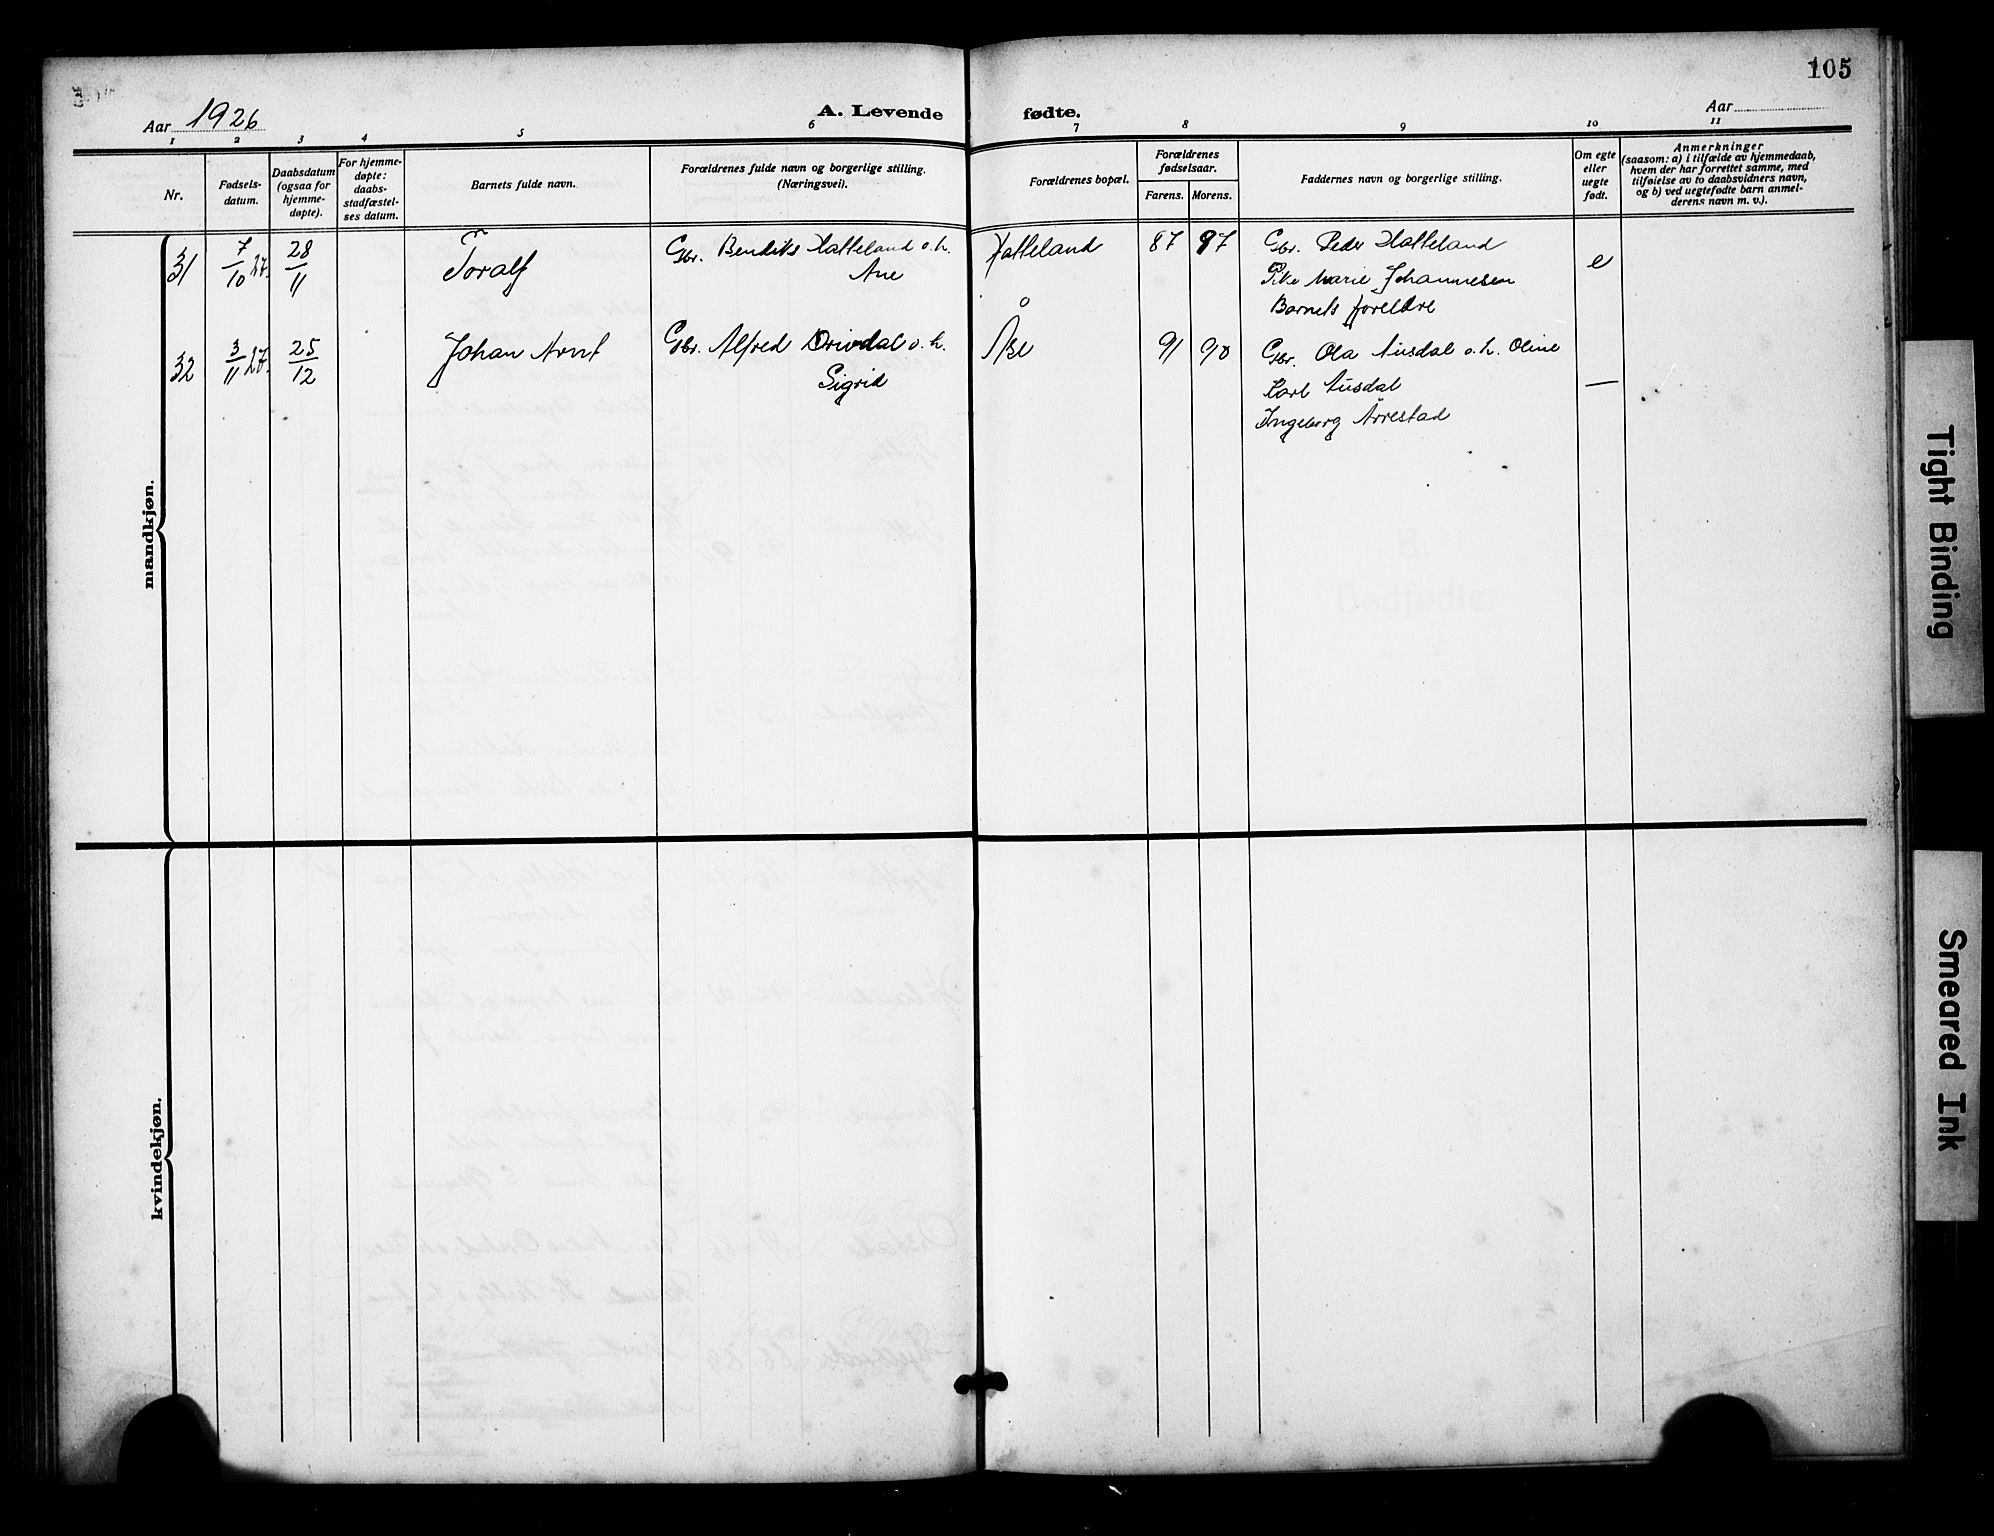 105
Aar 1926
A. Levende fødte.
Aar
1 2 3 4 5 6 7 8 9 10 11
Nr.
Fødsels-
datum.
Daabsdatum
(ogsaa for
hjemme-
døpte).
For hjemme-
døpte:
daabs-
stadfæstel-
ses datum.
Barnets fulde navn.
Forældrenes fulde navn og borgerlige stilling.
(Næringsvei).
Forældrenes bopæl.
Forældrenes
fødselsaar.
Farens. Morens.
Faddernes navn og borgerlige stilling.
Om egte
eller
uegte
født.
Anmerkninger
(saasom: a) i tilfælde av hjemmedaab,
hvem der har forrettet samme, med
tilføielse av to daabsvidners navn,
og b) ved uegtefødte barn anmel-
derens navn m. v.).
mandkjøn.
31 7/10 27. 28/11 Toralf Gbr. Bendiks Hatteland o. h. Hatteland 87 87 Gbr. Peder Hatteland e
Ane Pike Marie Johannesen
Barnets foreldre
32 3/11 27. 25/12 Johan Arnt Gbr. Alfred Drivdal o. h. Åse 91 90 Gbr. Ola Ausdal o. h. Oline —
Sigrid Karl Ausdal
Ingeborg Årrestad
kvindekjøn.
Tight Binding
Smeared Ink